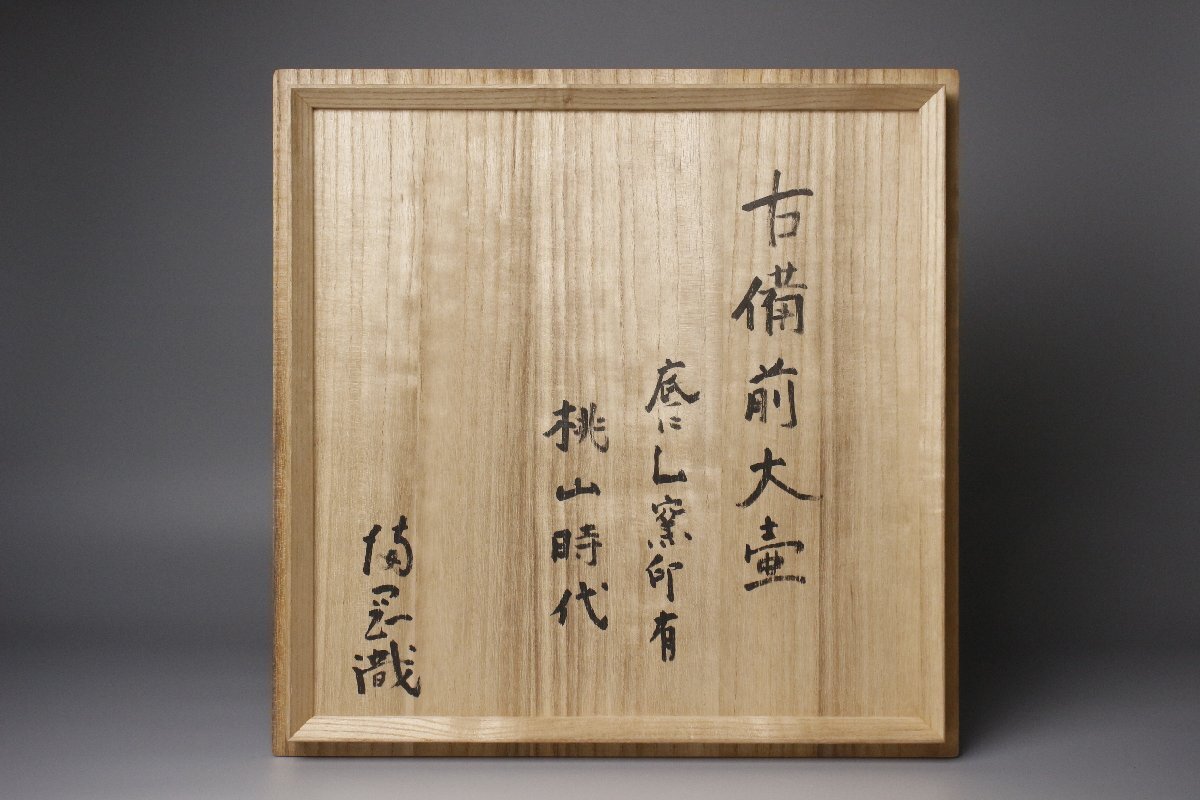 古備前大壷
底に乚窯印有
桃山時代
備 識